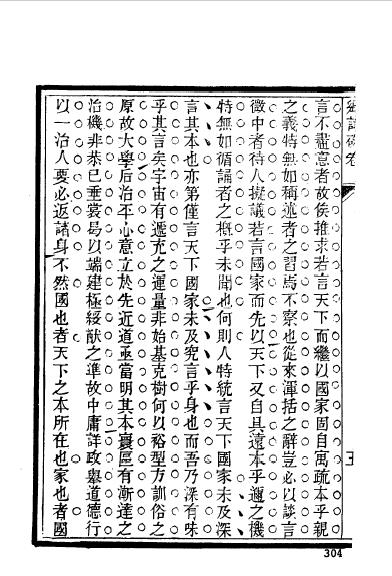 言不盡意者故俟推求若言天下而繼以國家固自寓疏本乎親
之義特無如稱述者之習焉不察也從來渾括之辭豈必以談言
微中者待人擬議若言國家而先以天下又自具遠本乎邇之機
特無如循誦者之槪乎未聞也何則人特統言天下國家未及深
言其本也亦第僅言天下國家未及究言乎身也而吾乃深有味
乎其言矣宇宙有遞充之運量非始基克樹何以裕型方訓俗之
原故大學后治平心意立於先近道亟當明其本寰區有漸達之
治機非恭已垂裳曷以端建極綏猷之準故中庸詳政舉道德行
以一治人要必返諸身不然國也者天下之本所在也家也者國
304